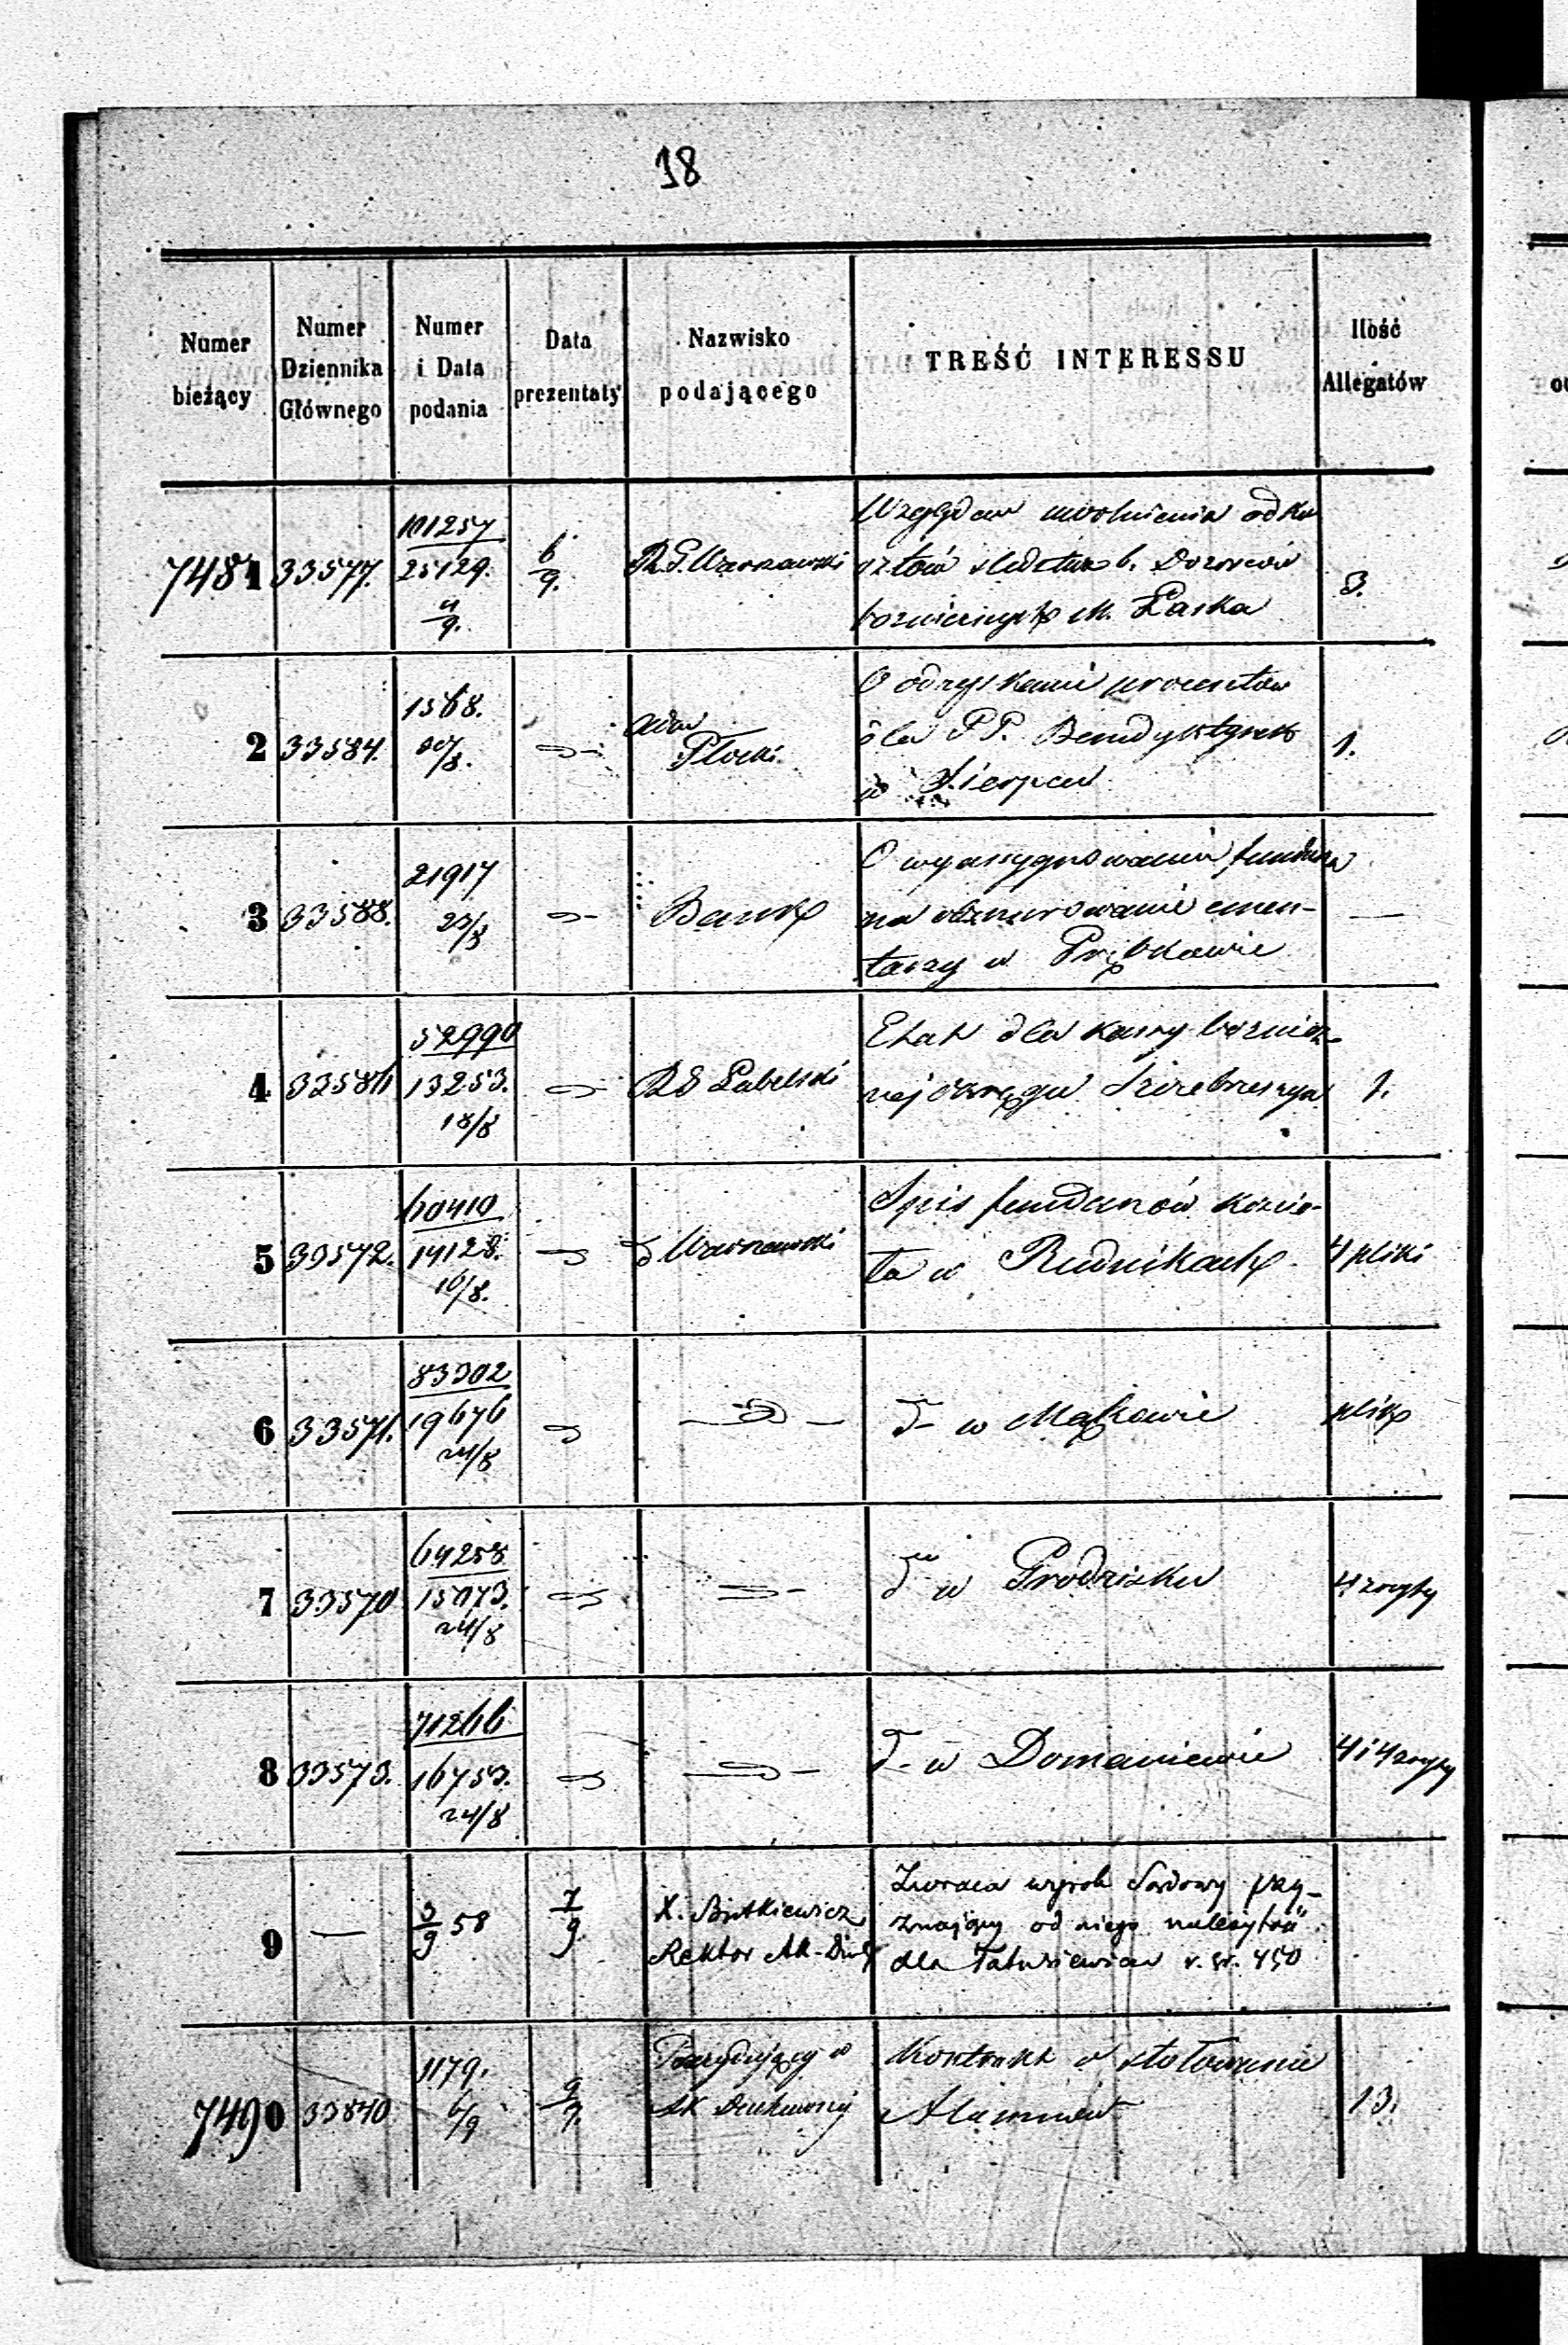 18
Numer bieżący
Numer Dziennika Głównego
Numer i Data podania
Data prezentaty
Nazwisko podającego
TREŚĆ INTERESSU
Ilość Allegatów
7481 33577. 101257 25129. 4/9. 6/9. R. G. Warszawski
Względem uwolnienia od ko
sztów śledztwa b. Dozorców
bożniczych M. Łaska
3.
2 33584. 1568. 20/8. Płocki
O odzyskanie procentów
dla PP. Benedyktynek
w Sierpcu
1.
3 33588. 21917 23/8 Bank
O wyassygnowanie funduszu
na obmurowanie cmen-
tarzy w
—
4 33586 52990 13253. 18/8 RG Lubelski
Etat dla kassy bóżnicz-
nej okręgu Szczebrzeszyn
1.
5 33572. 60410 14128. 16/8. Warszawski
Spis fundanów kościo-
ła w Rudnikach
4 pliki
6 33571. 83302 19676 24/8
d- w Makowie
plik
7 33570 64258 15073. 24/8
d w Grodzisku
4 zeszyty
8 33573. 71266 16753. 24/8
d- w Domaniewie
4 i 4 zeszyty
9 — 3/9 58 7/9 X. Butkiewicz
Rektor Ak-Duch
Zwraca wyrok Sądowy przy-
znający od niego należytość
dla r. sr. 450
7490 33840 1179. 6/9 9/9.
Prezydujący w
Ak Duchownej
Kontrakt o stołowanie
Alumnów
13.